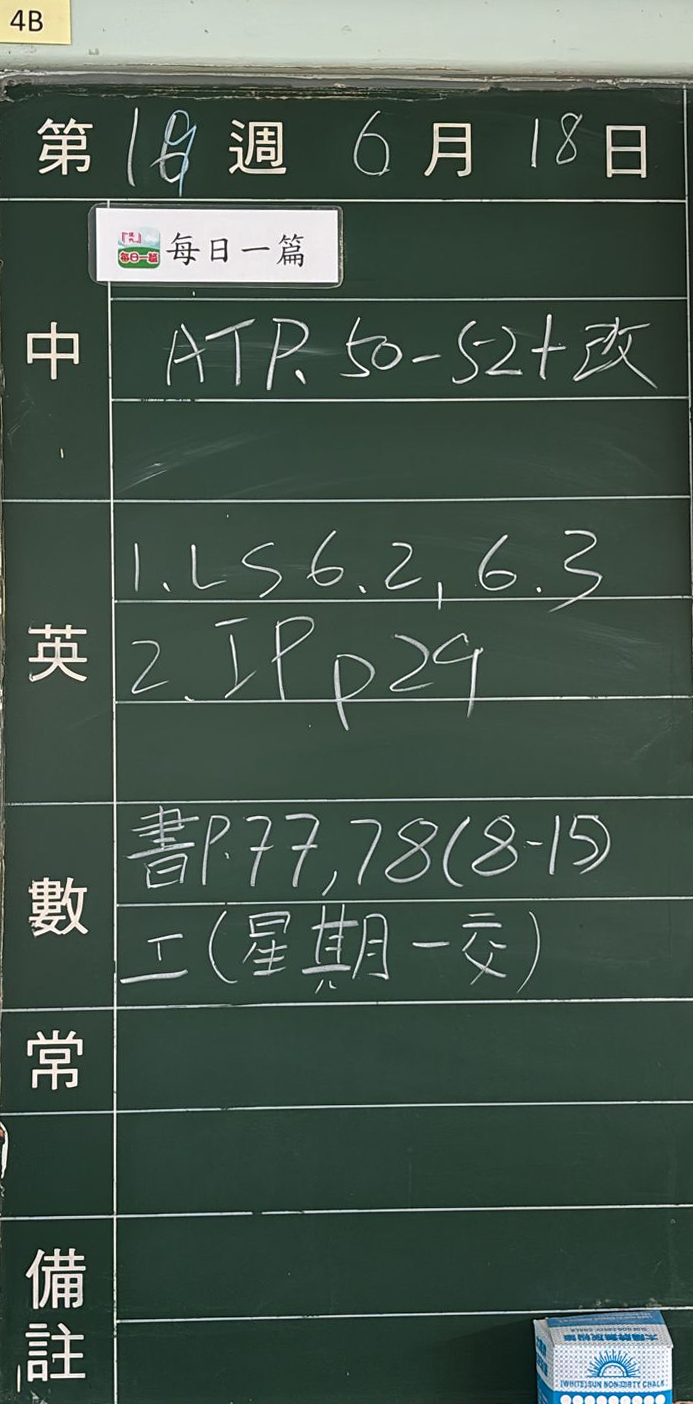 4B
第18週 6月18日
每日一篇 每日一篇
中
ATP. 50-52+改
英
1. LS 6.2, 6.3
2. IP p29
數
書P.77,78(8-15)
工(星期一交)
常
備註
WHITESUN NONDIRTY CHALK